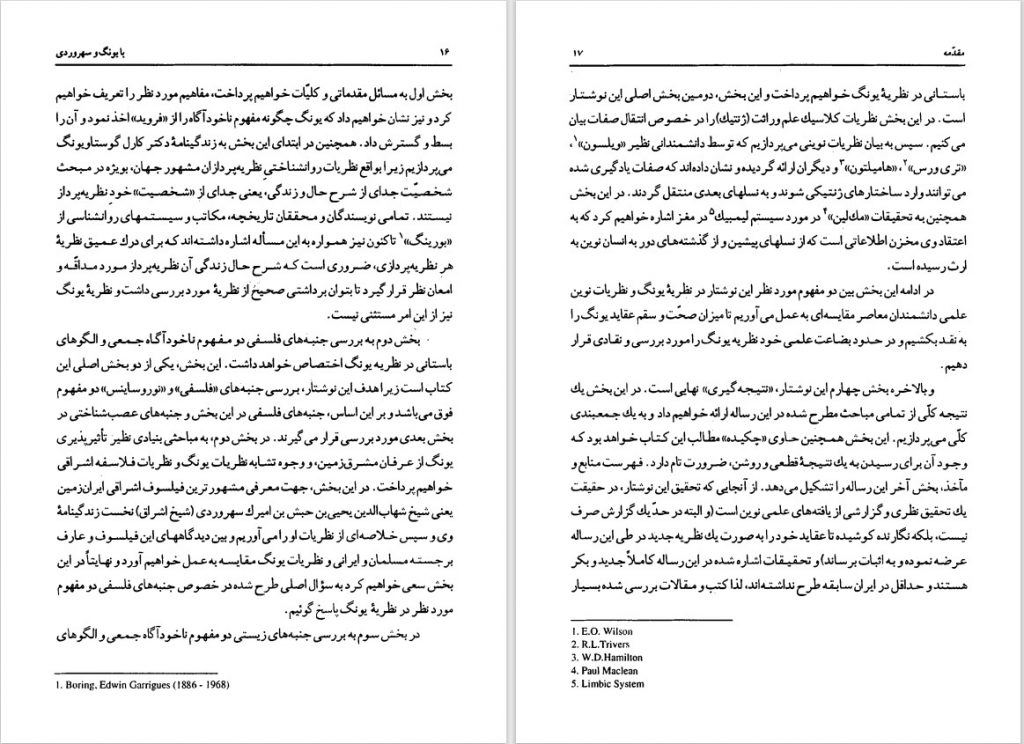 ۱۶
با یونگ و سهروردی
بخش اول به مسائل مقدماتی و کلیّات خواهیم پرداخت، مفاهیم مورد نظر را تعریف خواهیم
کرد و نیز نشان خواهیم داد که یونگ چگونه مفهوم ناخودآگاه را از «فروید» اخذ نمود و آن را
بسط و گسترش داد. همچنین در ابتدای این بخش به زندگینامهٔ دکتر کارل گوستاو یونگ
می‌پردازیم زیرا بواقع نظریات روانشناختی نظریه‌پردازان مشهور جهان، بویژه در مبحث
شخصیّت جدای از شرح حال و زندگی، یعنی جدای از «شخصیت» خود نظریه‌پرداز
نیستند. تمامی نویسندگان و محققان تاریخچه، مکاتب و سیستمهای روانشناسی از
«بورینگ»۱ تاکنون نیز همواره به این مسأله اشاره داشته‌اند که برای درك عمیق نظریهٔ
هر نظریه‌پردازی، ضروری است که شرح حال زندگی آن نظریه‌پرداز مورد مداقّه و
امعان نظر قرار گیرد تا بتوان برداشتی صحیح از نظریهٔ مورد بررسی داشت و نظریهٔ یونگ
نیز از این امر مستثنی نیست.
بخش دوم به بررسی جنبه‌های فلسفی دو مفهوم ناخودآگاه جمعی و الگوهای
باستانی در نظریه یونگ اختصاص خواهد داشت. این بخش، یکی از دو بخش اصلی این
کتاب است زیرا هدف این نوشتار، بررسی جنبه‌های «فلسفی» و «نوروساینس» دو مفهوم
فوق می‌باشد و بر این اساس، جنبه‌های فلسفی در این بخش و جنبه‌های عصب‌شناختی در
بخش بعدی مورد بررسی قرار می‌گیرند. در بخش دوم، به مباحثی بنیادی نظیر تأثیرپذیری
یونگ از عرفان مشرق‌زمین، و وجوه تشابه نظریات یونگ و نظریات فلاسفه اشراقی
خواهیم پرداخت. در این بخش، جهت معرفی مشهورترین فیلسوف اشراقی ایران‌زمین
یعنی شیخ شهاب‌الدین یحیی بن حبش بن امیرك سهروردی (شیخ اشراق) نخست زندگینامهٔ
وی و سپس خلاصه‌ای از نظریات او را می‌آوریم و بین دیدگاههای این فیلسوف و عارف
برجسته مسلمان و ایرانی و نظریات یونگ مقایسه به عمل خواهیم آورد و نهایتاً در این
بخش سعی خواهیم کرد به سؤال اصلی طرح شده در خصوص جنبه‌های فلسفی دو مفهوم
مورد نظر در نظریهٔ یونگ پاسخ گوئیم.
در بخش سوم به بررسی جنبه‌های زیستی دو مفهوم ناخودآگاه جمعی و الگوهای
1. Boring, Edwin Garrigues (1886 - 1968)
مقدّمه
۱۷
باستانی در نظریهٔ یونگ خواهیم پرداخت و این بخش، دومین بخش اصلی این نوشتار
است. در این بخش نظریات کلاسیك علم وراثت (ژنتیك) را در خصوص انتقال صفات بیان
می‌کنیم. سپس به بیان نظریات نوینی می‌پردازیم که توسط دانشمندانی نظیر «ویلسون»۱،
«تری ورس»۲، «هامیلتون»۳ و دیگران ارائه گردیده و نشان داده‌اند که صفات یادگیری شده
می‌توانند وارد ساختارهای ژنتیکی شوند و به نسلهای بعدی منتقل گردند. در این بخش
همچنین به تحقیقات «مك‌لین»۴ در مورد سیستم لیمبیك۵ در مغز اشاره خواهیم کرد که به
اعتقاد وی مخزن اطلاعاتی است که از نسلهای پیشین و از گذشته‌های دور به انسان نوین به
ارث رسیده است.
در ادامه این بخش بین دو مفهوم مورد نظر این نوشتار در نظریهٔ یونگ و نظریات نوین
علمی دانشمندان معاصر مقایسه‌ای به عمل می‌آوریم تا میزان صحّت و سقم عقاید یونگ را
به نقد بکشیم و در حدود بضاعت علمی خود نظریه یونگ را مورد بررسی و نقادی قرار
دهیم.
و بالاخره بخش چهارم این نوشتار، «نتیجه گیری» نهایی است. در این بخش یك
نتیجه کلّی از تمامی مباحث مطرح شده در این رساله ارائه خواهیم داد و به یك جمعبندی
کلّی می‌پردازیم. این بخش همچنین حاوی «چکیده» مطالب این کتاب خواهد بود که
وجود آن برای رسیدن به یك نتیجهٔ قطعی و روشن، ضرورت تام دارد. فهرست منابع و
مآخذ، بخش آخر این رساله را تشکیل می‌دهد. از آنجایی که تحقیق این نوشتار، در حقیقت
یك تحقیق نظری و گزارشی از یافته‌های علمی نوین است (و البته در حدّ یك گزارش صرف
نیست، بلکه نگارنده کوشیده تا عقاید خود را به صورت یك نظریه جدید در طی این رساله
عرضه نموده و به اثبات برساند) و تحقیقات اشاره شده در این رساله کاملاً جدید و بکر
هستند و حداقل در ایران سابقه طرح نداشته‌اند، لذا کتب و مقالات بررسی شده بسیار
1. E.O. Wilson
2. R.L.Trivers
3. W.D.Hamilton
4. Paul Maclean
5. Limbic System